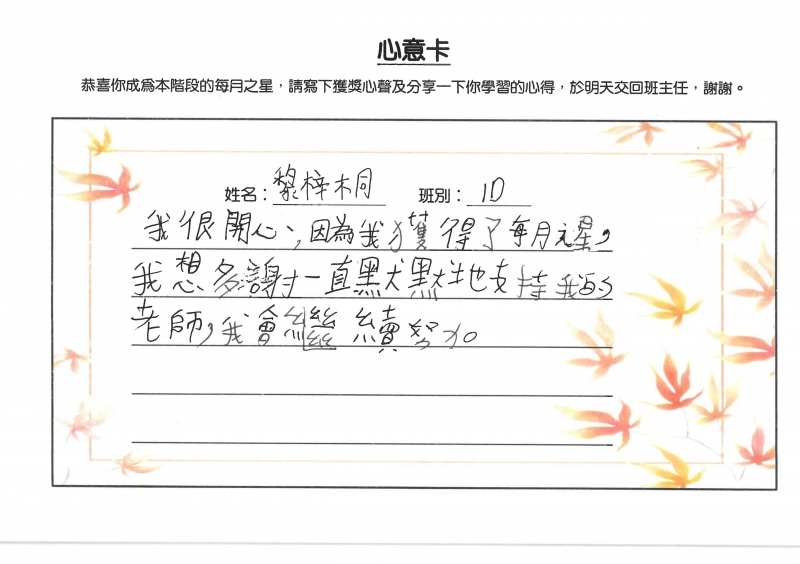 心意卡
恭喜你成為本階段的每月之星，請寫下獲獎心聲及分享一下你學習的心得，於明天交回班主任，謝謝。
姓名：黎梓桐 班別：1D
我很開心，因為我獲得了每月之星，
我想多謝一直默默地支持我的
老師，我會繼續努加